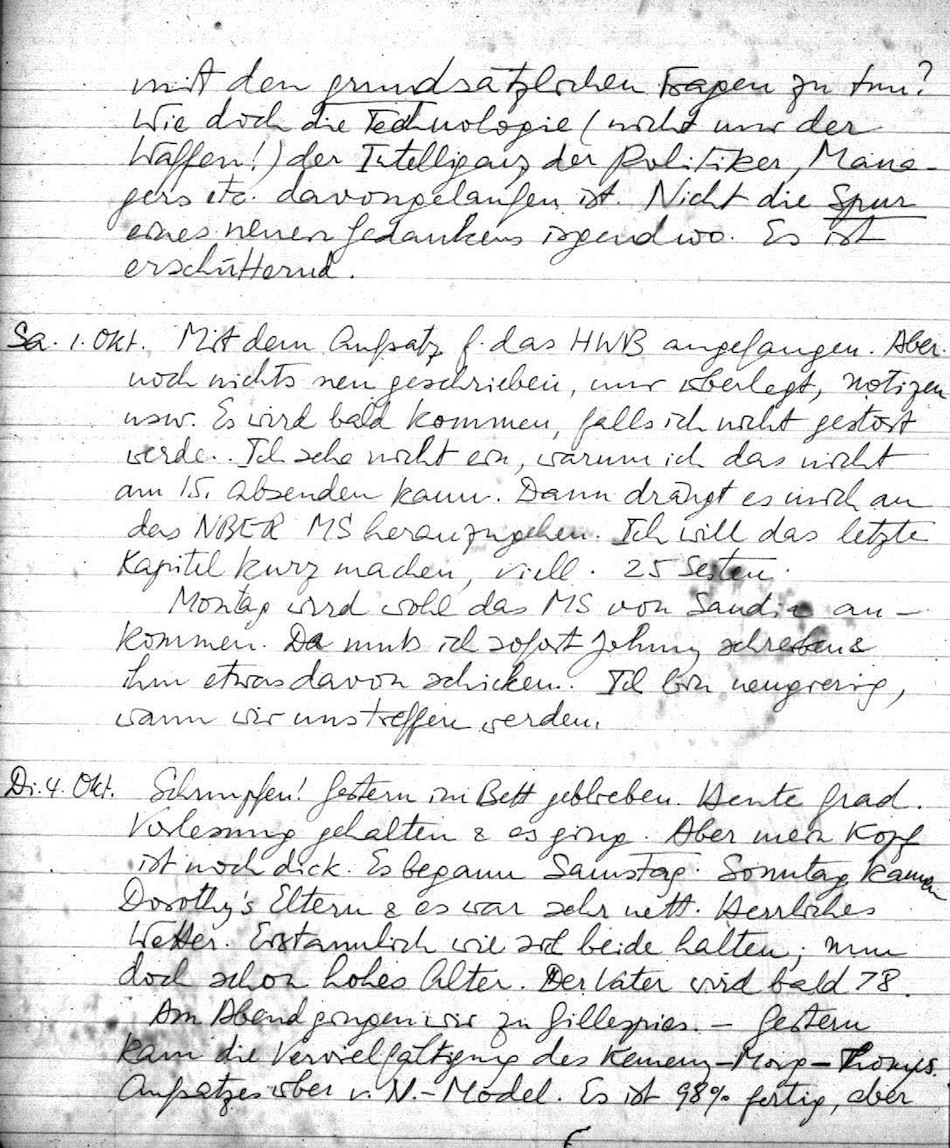 mit den grundsätzlichen Fragen zu tun?
Wie doch die Technologie (nicht nur der
Waffen!) der Intelligenz der Politiker, Mana-
gers etc. davongelaufen ist. Nicht die Spur
eines neuen Gedankens irgendwo. Es ist
erschütternd.
Sa. 1. Okt. Mit dem Aufsatz f. das HWB angefangen. Aber
noch nichts neu geschrieben, nur überlegt, Notizen
usw. Es wird bald kommen, falls ich nicht gestört
werde. Ich sehe nicht ein, warum ich das nicht
am 15. absenden kann. Dann drängt es mich an
das NBER MS heranzugehen. Ich will das letzte
Kapitel kurz machen, viell. 25 Seiten.
Montag wird wohl das MS von Sandia an-
kommen. Da muß ich sofort Johnny schreiben &
ihm etwas davon schicken. Ich bin neugierig,
wann wir uns treffen werden.
Di. 4. Okt. Schnupfen! Gestern im Bett geblieben. Heute Grad.
Vorlesung gehalten & es ging. Aber mein Kopf
ist noch dick. Es begann Samstag. Sonntag kamen
Dorothy's Eltern & es war sehr nett. Herrliches
Wetter. Erstaunlich wie sich beide halten; nun
doch schon hohes Alter. Der Vater wird bald 78.
Am Abend gingen wir zu Gillespies. – Gestern
kam die Vervielfältigung des Kemeny-Morg-Thomps.
Aufsatzes über v. N.-Model. Es ist 98% fertig, aber